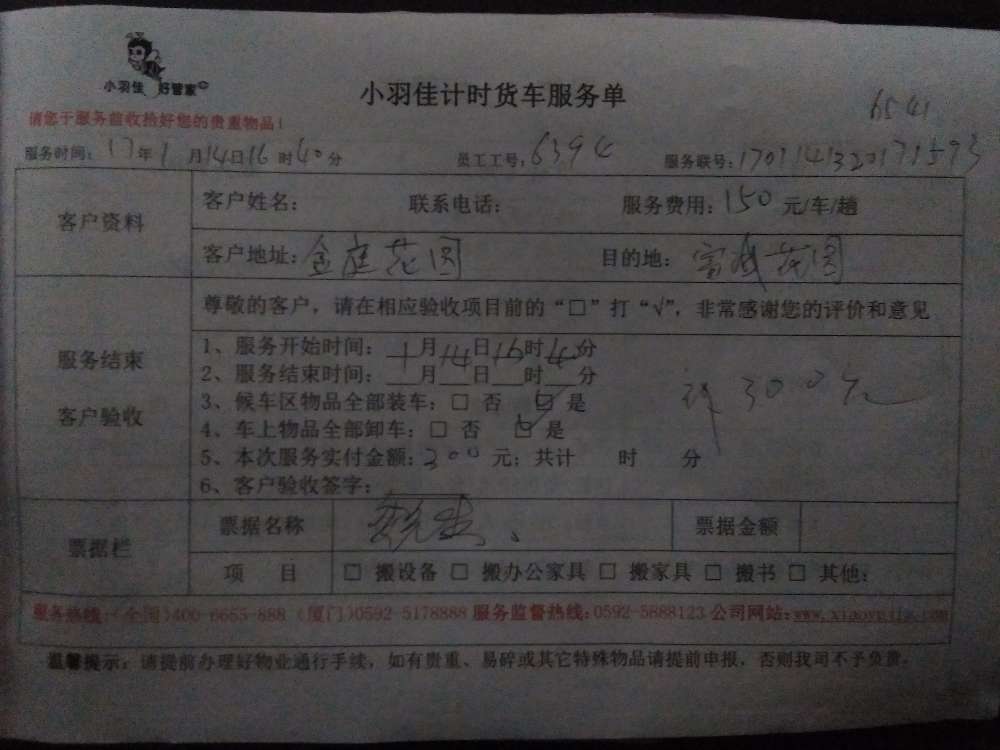 小羽佳 好管家
小羽佳计时货车服务单
6541
请您于服务前收拾好您的贵重物品!
服务时间: 17年1月14日16时40分 员工工号: 6394 服务联号: 1701141320171593
客户资料
客户姓名: 联系电话: 服务费用: 150 元/车/趟
客户地址: 金庭花园 目的地: 富城花园
服务结束
客户验收
尊敬的客户，请在相应验收项目前的“□”打“√”，非常感谢您的评价和意见
1、服务开始时间: 1月14日16时4分
2、服务结束时间: 月 日 时 分
3、候车区物品全部装车: □ 否 □ 是
4、车上物品全部卸车: □ 否 □ 是
5、本次服务实付金额: 300 元; 共计 时 分
6、客户验收签字:
300元
票据栏
票据名称 票据金额
项 目 □ 搬设备 □ 搬办公家具 □ 搬家具 □ 搬书 □ 其他:
服务热线: (全国)400-6665-888 (厦门)0592-5178888 服务监督热线: 0592-5888123 公司网站: www.xiaoyujia.com
温馨提示: 请提前办理好物业通行手续, 如有贵重、易碎或其它特殊物品请提前申报, 否则我司不予负责。